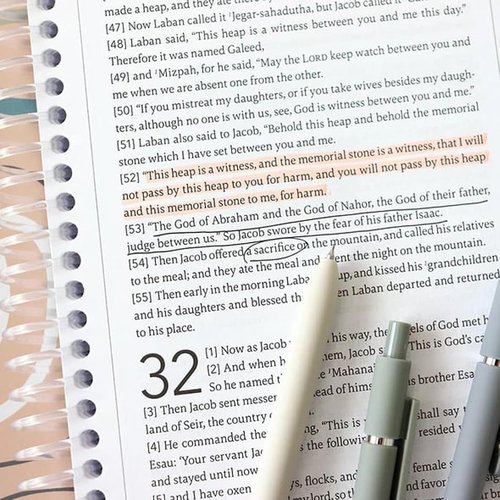 made a heap, and they ate there
[47] Now Laban called it Jegar-sahadutha, but Jacob called it
[48] Laban said, “This heap is a witness between you and me this day.”
Therefore it was named Galeed,
[49] and Mizpah, for he said, “May the LORD keep watch between you and
me when we are absent one from the other.
[50] “If you mistreat my daughters, or if you take wives besides my daugh-
ters, although no one is with us, see, God is witness between you and me.”
[51] Laban also said to Jacob, “Behold this heap and behold the memorial
stone which I have set between you and me.
[52] “This heap is a witness, and the memorial stone is a witness, that I will
not pass by this heap to you for harm, and you will not pass by this heap
and this memorial stone to me, for harm.
[53] “The God of Abraham and the God of Nahor, the God of their father,
judge between us.” So Jacob swore by the fear of his father Isaac.
[54] Then Jacob offered a sacrifice on the mountain, and called his relatives
to the meal; and they ate the meal and the night on the mountain.
[55] Then early in the morning up, and kissed his grandchildren
and his daughters and blessed Laban departed and returned
to his place.
32 [1] Now as Jacob his way, the of God met
[2] And when Jacob This is God's
So he named
[3] Then Jacob sent ahead of himself brother Esau
land of Seir, the country
[4] He commanded “This is shall say
Esau: ‘Your servant the resided
and stayed until now
[5] and I have oxen flocks, and female
my lord, favor